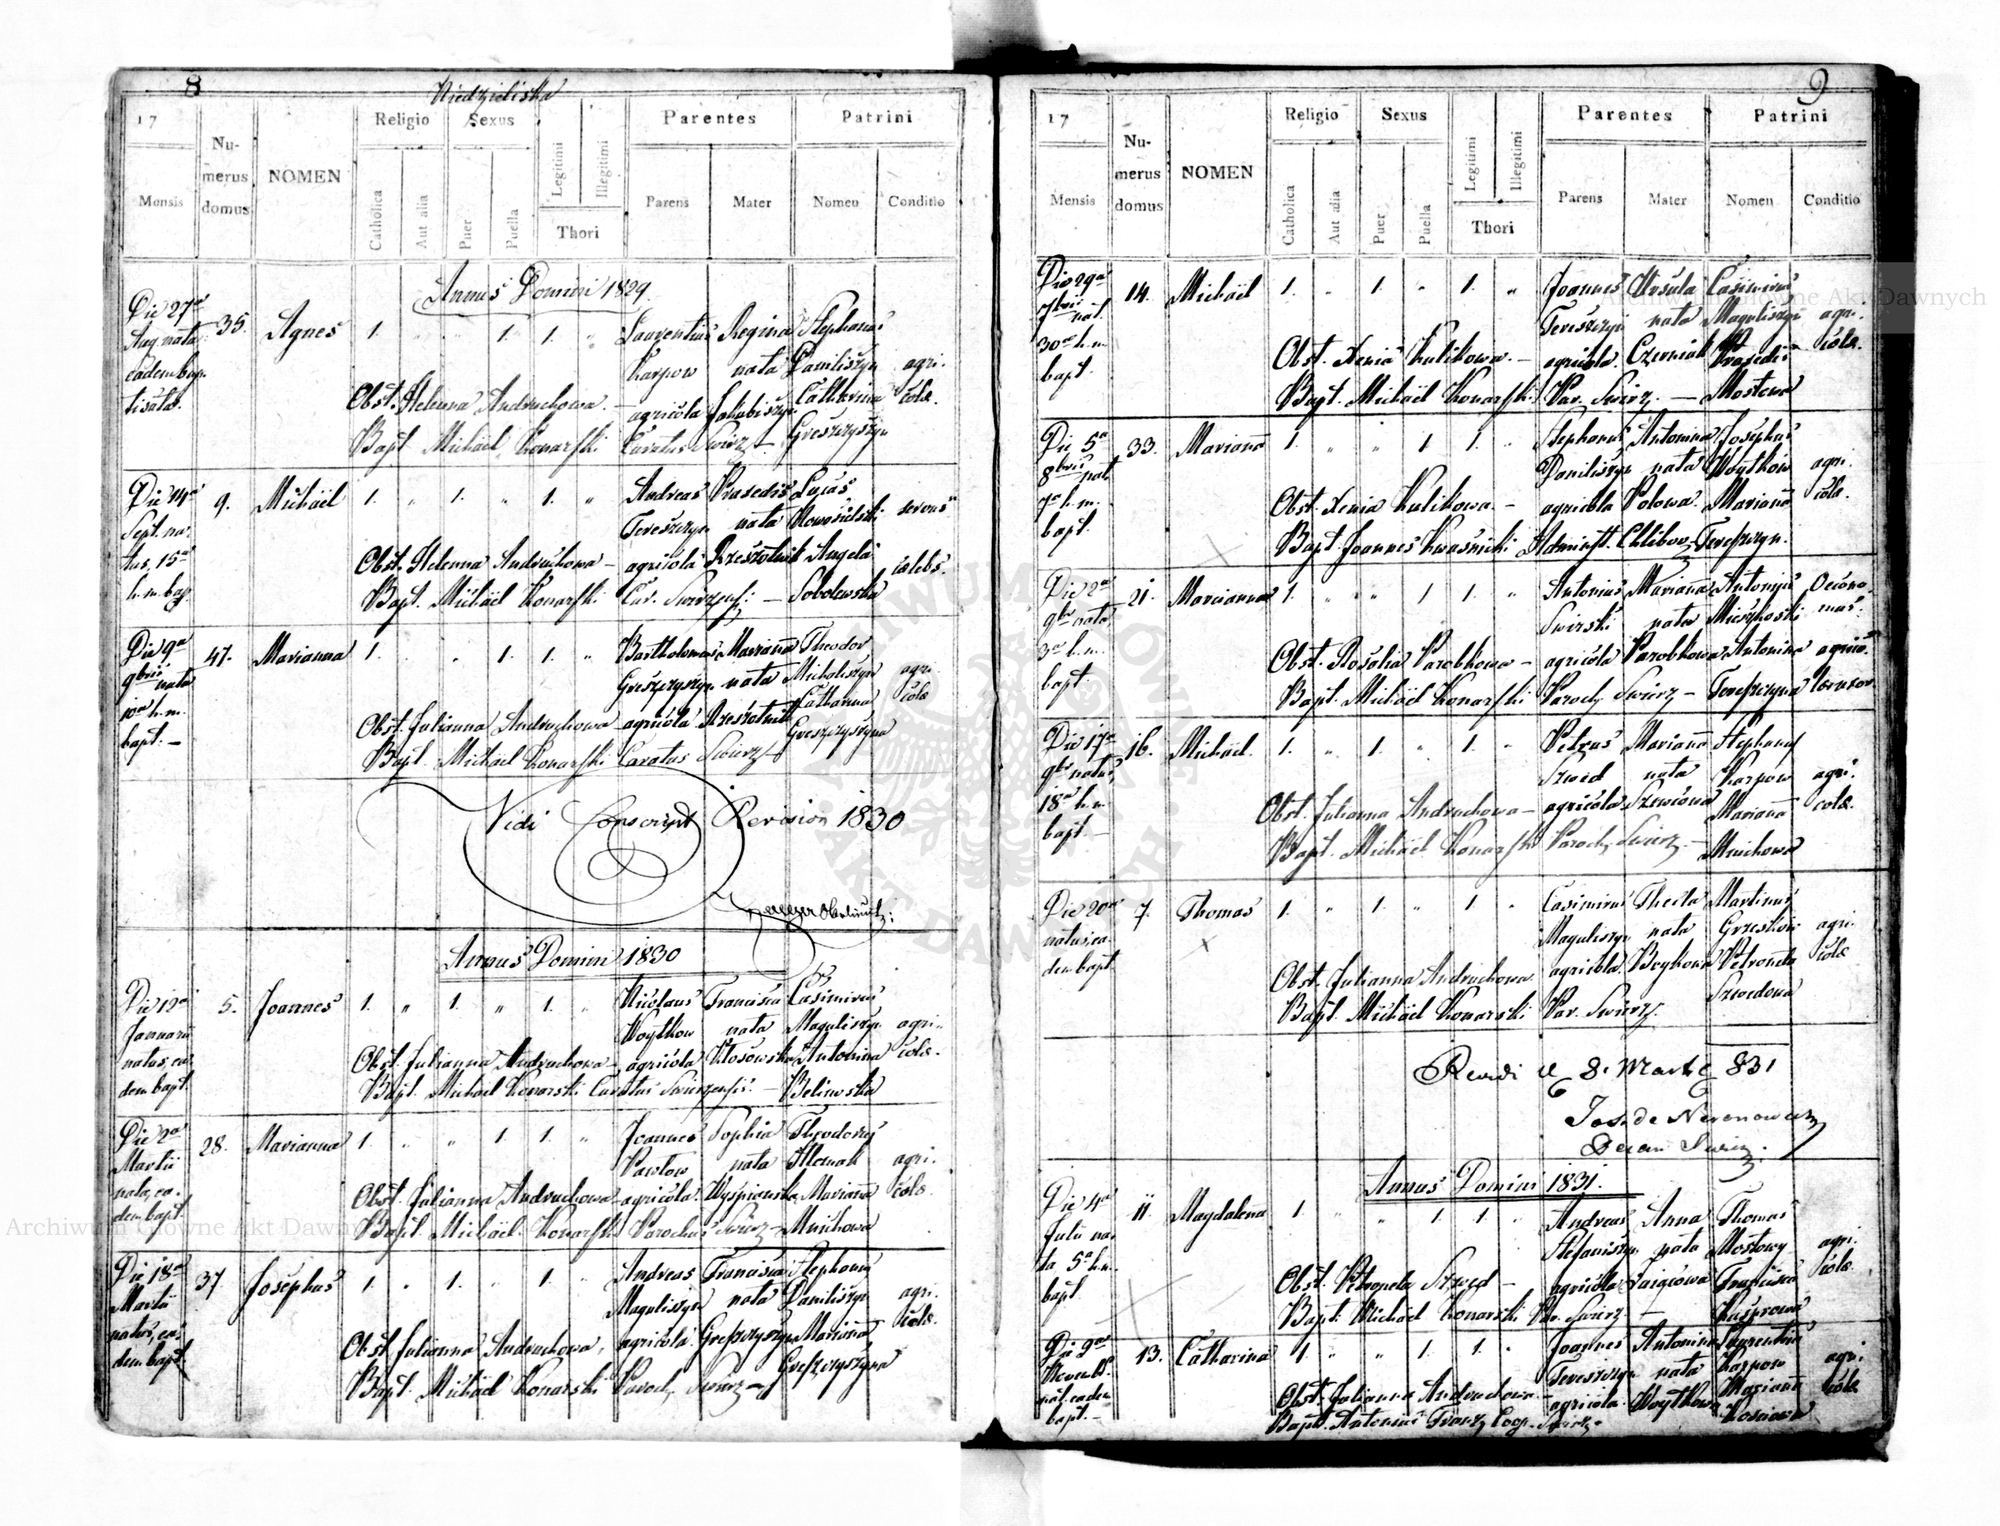 8
Niedzieliska
17
Mensis
Numerus domus
NOMEN
Religio
Catholica
Aut alia
Sexus
Puer
Puella
Legitimi
Illegitimi
Thori
Parentes
Parens
Mater
Patrini
Nomen
Conditio
Annus Domini 1829.
Die 27ª Aug. nata eadem baptisata.
35.
Agnes
1. 1. 1.
Laurentius Karpow agricola
Regina nata Jakubiszyn
Stephanus Daniliszyn Catharina Greszczyszyn
agricolæ.
Obst. Helenna Andruchowa.
Bapt. Michäel Konarski Curatus Swirz
Die 14ª Sept. natus, 15ª h. m. bap.
9.
Michäel
1. 1. 1.
Andreas Tereszczyn agricola
Praxedis nata Rzeszotnik
Lucas Nowosielski Angela Sobolewska
servus cælebs.
Obst. Helenna Andruchowa
Bapt. Michäel Konarski Cur. Swirzensis
Die 9ª 9bris nata 10ª h. m. bapt.
47.
Marianna
1. 1. 1.
Bartholomeus Greszczyszyn agricola
Marianna nata Rzeszotnik
Theodor Micholiszyn Catharina Greszczyszyna
agricolæ
Obst. Julianna Andruchowa
Bapt. Michäel Konarski Curatus Swirz
Vidi Conscript Revision 1830
Annus Domini 1830
Die 12ª Januarii natus, eadem bapt.
5.
Joannes
1. 1. 1.
Nicolaus Woytkow agricola
Francisca nata Kłosowska
Casimirus Maguliszyn Antonina Beliowska
agricolæ.
Obst. Julianna Andruchowa
Bapt. Michäel Konarski Curatus Swirzensis
Die 2ª Martii nata, eadem bapt.
28.
Marianna
1. 1. 1.
Joannes Pawłow agricola
Sophia nata Wyspianska
Theodorus Marianna Mnichowa
agricolæ.
Obst. Julianna Andruchowa
Bapt. Michäel Konarski Parochus Swirz
Die 18ª Martii natus, eadem bapt.
37
Josephus
1. 1. 1.
Andreas Maguliszyn agricola
Francisca nata Greszczyszyn
Stephanus Daniliszyn Marianna Greszczyszyna
agricolæ.
Obst. Julianna Andruchowa,
Bapt. Michäel Konarski Paroch. Swirz
9
17
Mensis
Numerus domus
NOMEN
Religio
Catholica
Aut alia
Sexus
Puer
Puella
Legitimi
Illegitimi
Thori
Parentes
Parens
Mater
Patrini
Nomen
Conditio
Die 29ª 7bris nat. 30ª h. m. bapt.
14.
Michäel
1. 1. 1.
Joannes Tereszczyn agricola
Ursula nata Czerniak
Casimirus Maguliszyn Praxedis Mostowa
agricolæ.
Obst. Xenia Kulikowa
Bapt. Michäel Konarski Par. Swirz.
Die 5ª 8bris nat. 7ª h. m. bapt.
33.
Marianna
1. 1 1.
Stephanus Daniliszyn agricola
Antonina nata Połowa
Josephus Woytkow Marianna Tereszczyn.
agricolæ.
Obst. Xenia Kulikowa
Bapt. Joannes Kwasnicki Administ. Chlibow
Die 2ª 9bris nata, 3ª h. m. bapt
21.
Marcianna
1. 1 1.
Antonius Swirski agricola
Mariana nata Parobkowa
Antonius Mieszkoski Antonina Tereszczyna
Oeconomus.
Obst. Rosalia Parobkowa
Bapt. Michäel Konarski Paroch. Swirz
Die 17ª 9bris natus, 18ª h. m. bapt.
16.
Michäel.
1. 1. 1.
Petrus Szwed agricola
Marianna nata Szewciowa
Stephanus Karpow Marianna Mnichowa
agricolæ.
Obst. Julianna Andruchowa
Bapt. Michäel Konarski Paroch. Swirz.
Die 20ª natus, eadem bapt
7.
Thomas
1. 1. 1
Casimirus Maguliszyn agricola
Thecla nata Boykowa
Martinus Grzeskow Petronela Szwedowa
agricolæ
Obst. Julianna Andruchowa
Bapt. Michäel Konarski Par. Swirz.
8. Mart 831
Annus Domini 1831.
Die 4ª Julii nata 5ª h. m. bapt
11
Magdalena
1. 1. 1.
Andreas Stefaniszyn agricola
Anna nata
Thomas Mostowy Francisca Kasprowa
agricolæ.
Obst. Petronela Szwed
Bapt. Michäel Konarski Par. Swirz
Die 9ª Novemb. nat. eadem bapt.
13.
Catharina
1. 1. 1.
Joannes Tereszczyn agricola
Antonina nata Woytkow
Laurentius Karpow Marianna
agricolæ
Obst. Julianna Andruchowa
Bapt. Antonius Coop. Swirz.
Archiwum Główne Akt Dawnych
Archiwum Główne Akt Dawnych
ARCHIWUM GŁÓWNE AKT DAWNYCH